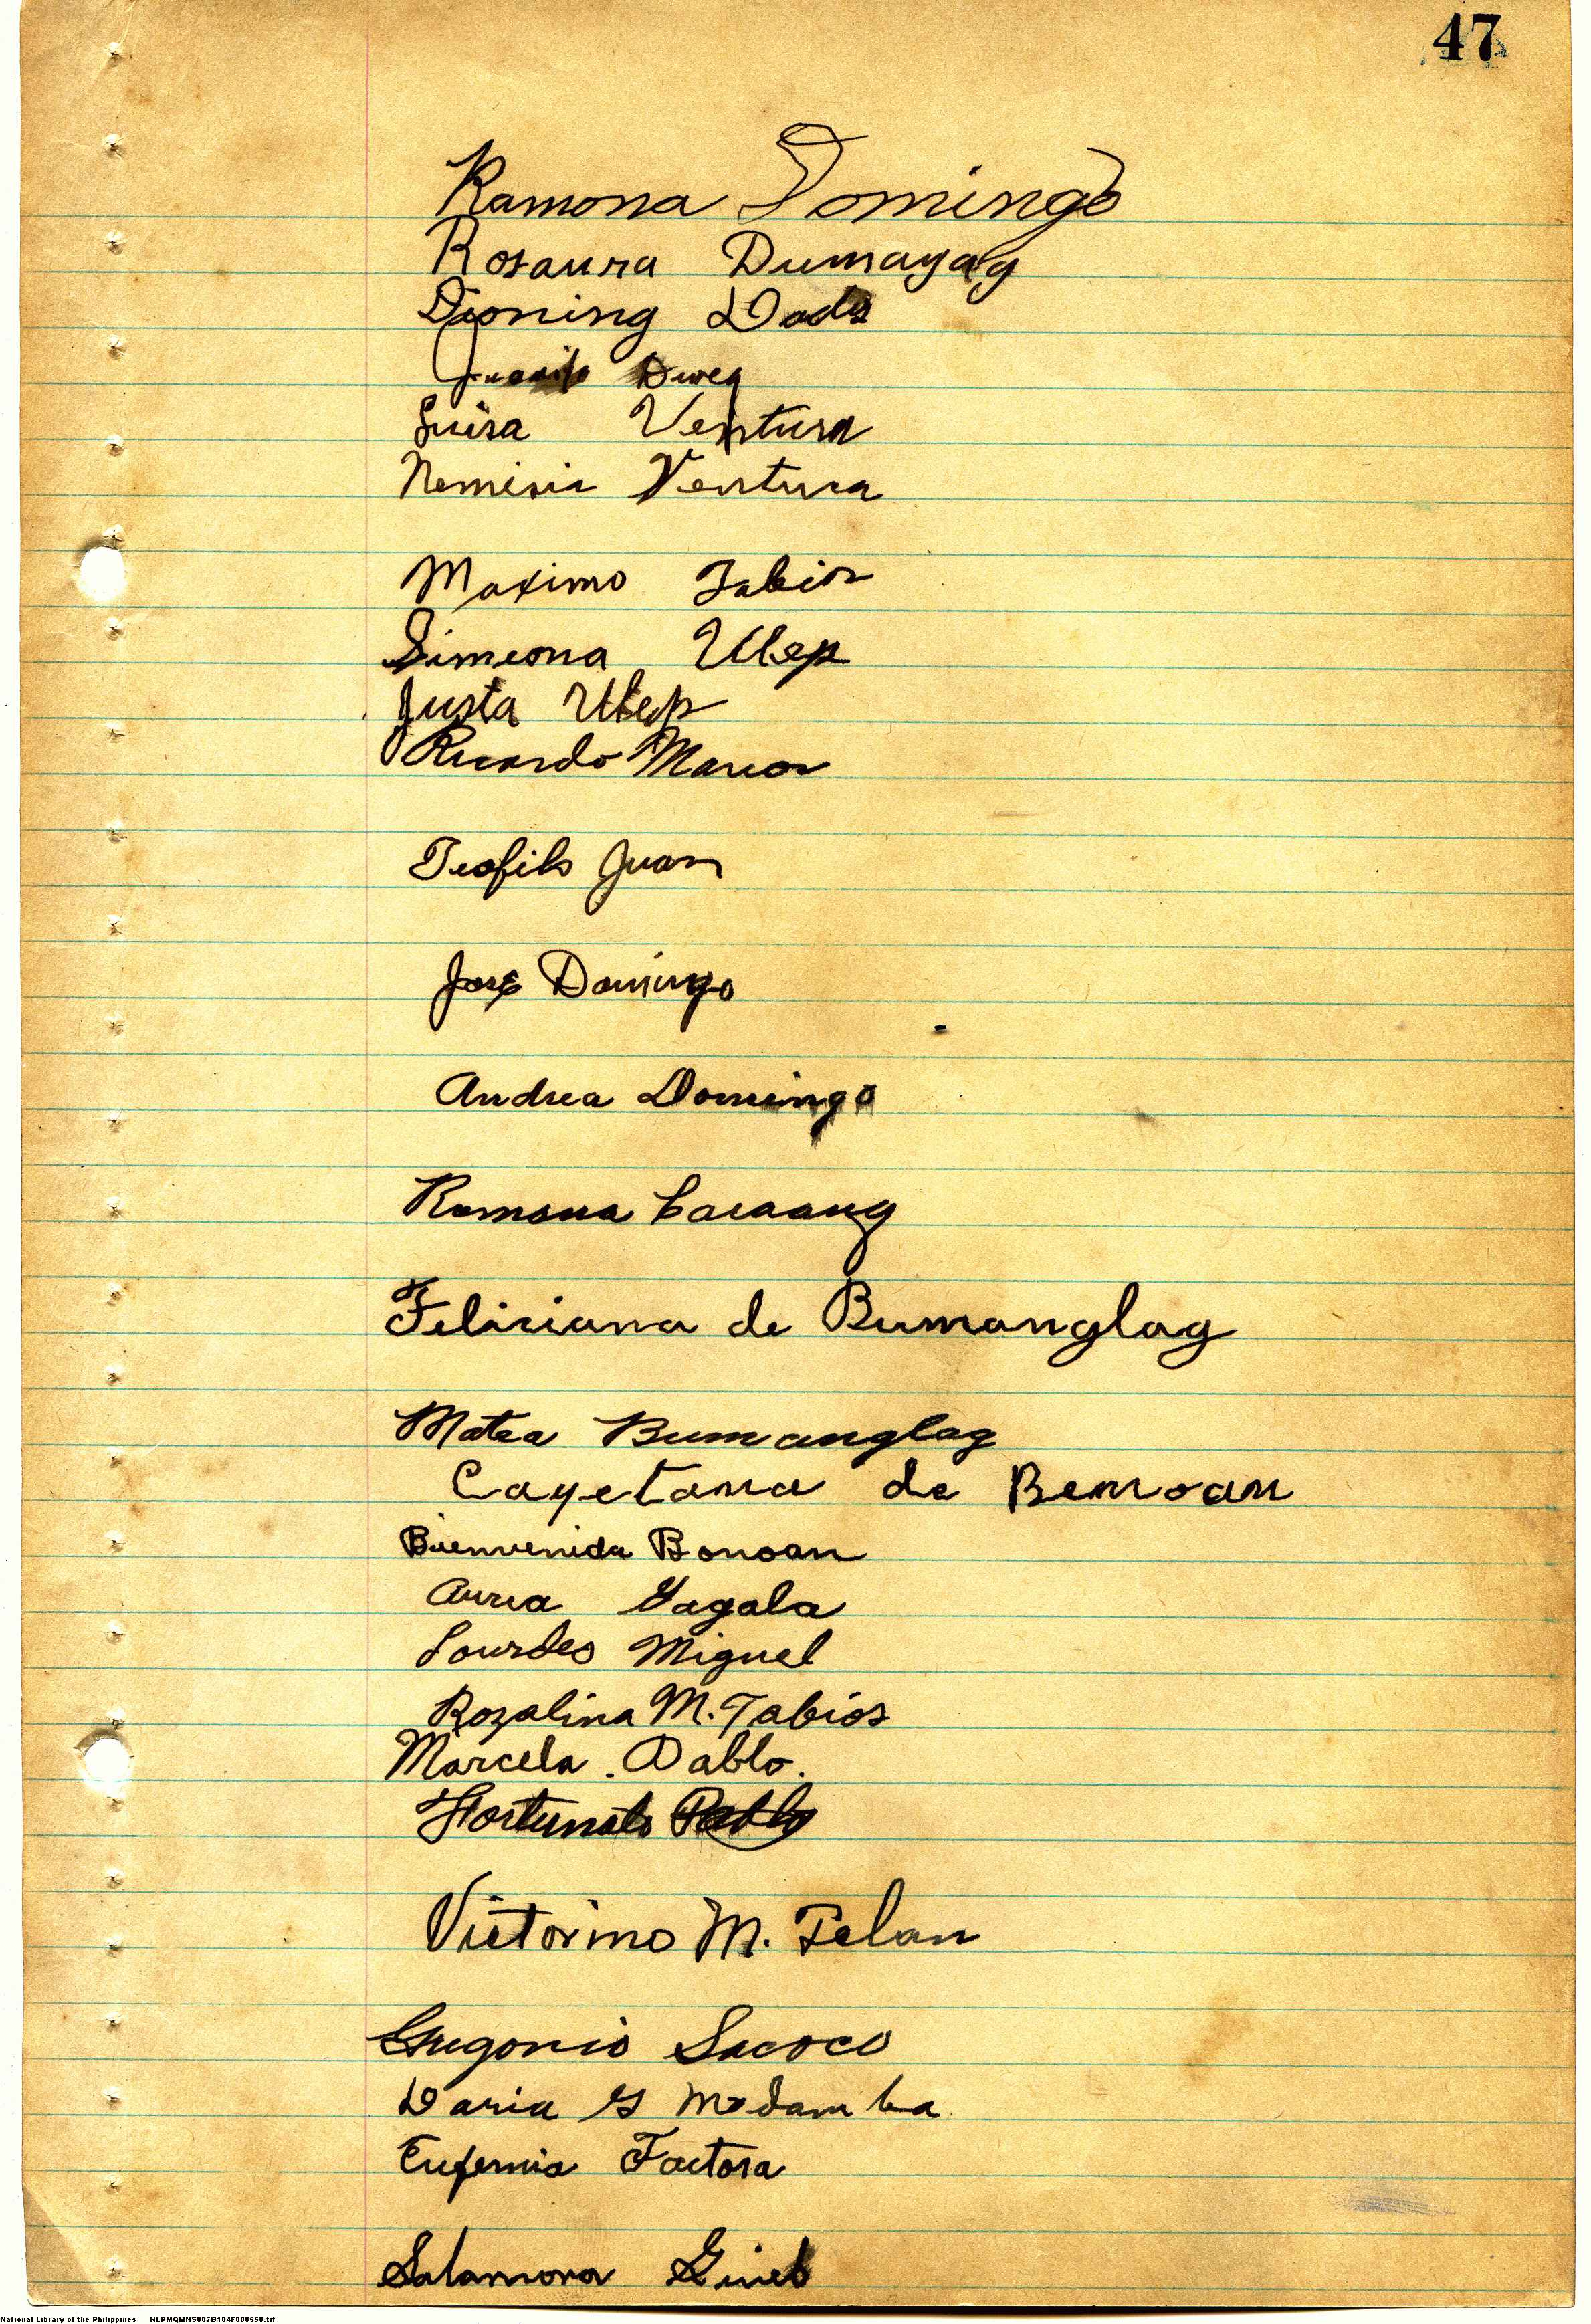 47
Ramona Domingo
Rosaura Dumayag
Dioning
Luisa Ventura
Nemisia Ventura
Maximo Tabios
Simeona Ulep
Justa Ulep
Ricardo
Teofilo Juan
Jose Domingo
Andrea Domingo
Ramona
Feliciana de Bumanglag
Matea Bumanglag
Cayetana de Bemoan
Bienvenida Bonoan
Aurea Yagala
Lourdes Miguel
Rozalina M. Tabios
Marcela . Pablo.
Fortunato Pablo
Victorino M. Felan
Gregorio Sacoco
Daria G Madamba
Eufemia Factora
National Library of the Philippines NLPMQMNS007B104F000558.tif